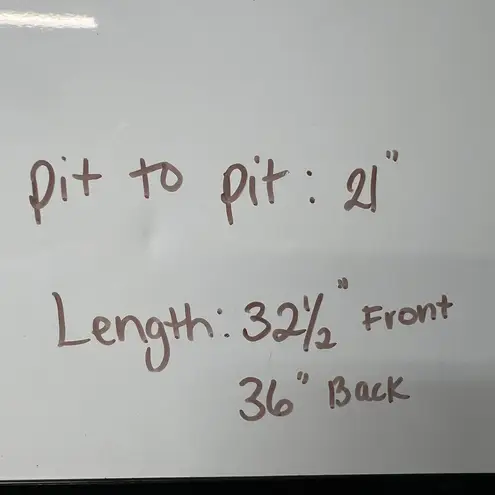 pit to pit: 21"
Length: 32½" Front
36" Back